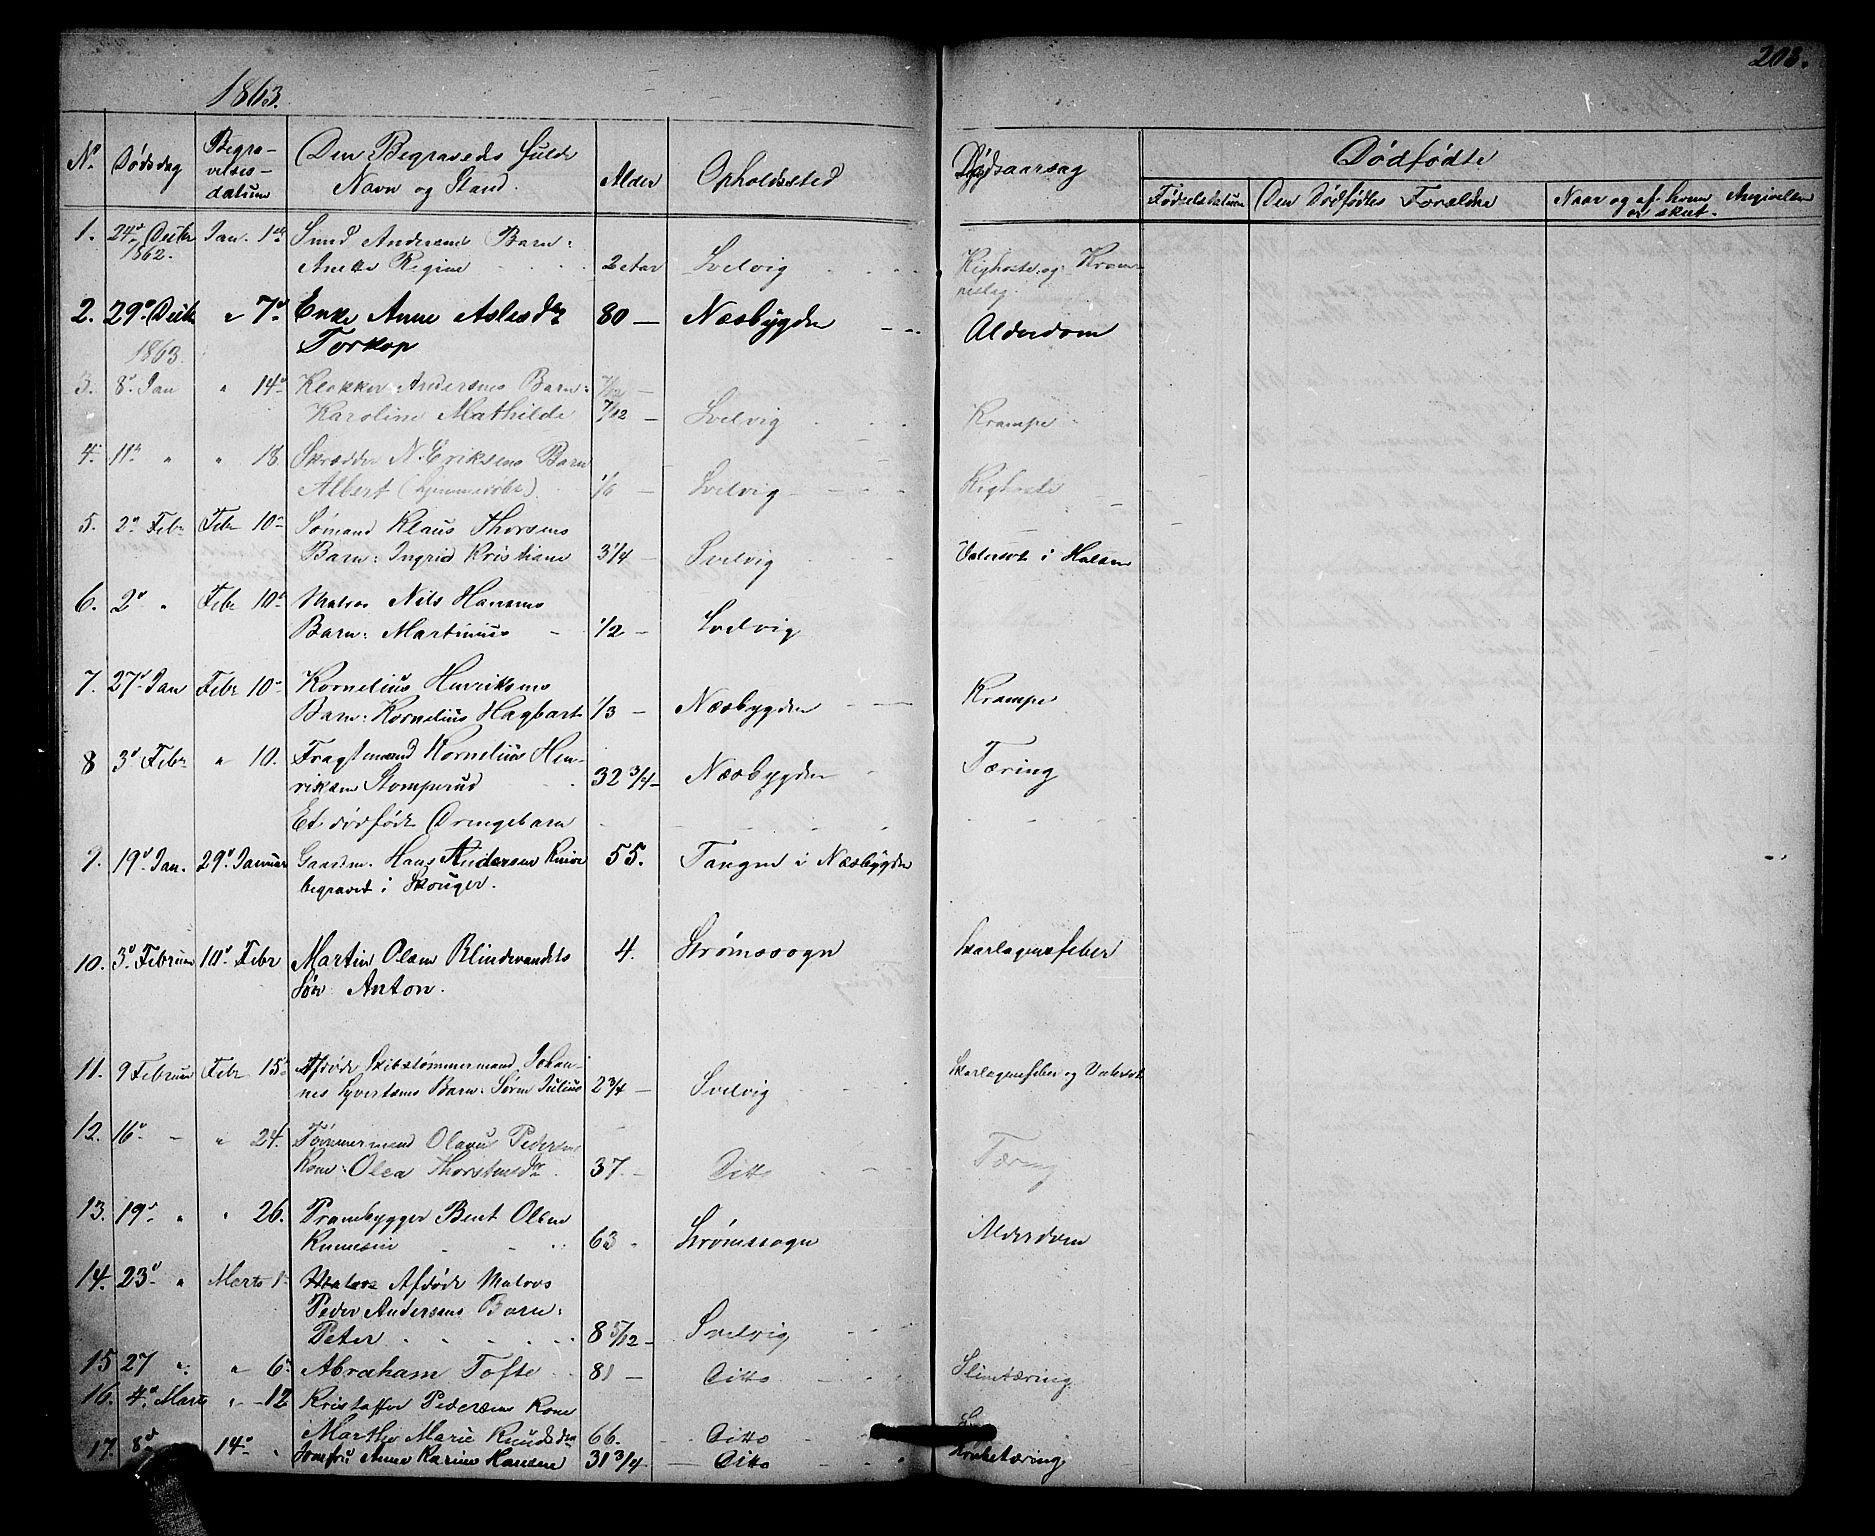 203.
1863.
No Dødsdag Begravelsesdatum Den Begravedes fulde Navn og Stand. Alder Opholdssted Dødsaarsag Dødfødte
Fødselsdatum Den Dødfødtes Forældre Naar og af hvem Angivelsen er skeet.
1. 24d Decbr 1862. Jan. 1ste Smed Andersens Barn:
Anette Regine 2 Aar Svelvig Kighoste og Krampeslag.
2. 29d Decbr " 7d Enke Anne Aslesdtr 80 — Næsbygden Alderdom
Torkop
1863
3. 8d Jan " 14d Klokker Andersens Barn: 7/12 —
Karoline Mathilde 7/12 — Svelvig Krampe
4. 11te " " 18. Skrædder N. Eriksens Barn
Albert (hjemmedøbt) — Svelvig Kighoste
5. 2d Febr Febr 10d Sømand Klaus Thorsens
Barn: Ingrid Kristiane 3 1/4 — Svelvig Vatersot i Halsen
6. 2d " Febr 10d Matros Nils Hansens
Barn: Martinius 1/2 — Svelvig
7. 27d Jan Febr 10d Kornelius Henriksens
Barn: Kornelius Hagbart 1/3 — Næsbygden Krampe
8 3d Febr " 10. Fragtemand Kornelius Hen-
riksen Stomperud 32 3/4 — Næsbygden Tæring
Et dødfødt Drengebarn
9. 19d Jan. 29d Januar Gaardm. Hans Andersen 55. Tangen i Næsbygden
begravet i Skouger.
10. 3d Februar 10d Febr Martin Olsen Blindevandets 4. Strømssogn Skarlagensfeber
Søn Anton.
11. 9 Februar Febr 15d Afdøde Skibstømmermand Johan-
nes Syvertsens Barn: Søren Julius 2 3/4 — Svelvig Skarlagensfeber og Vatersot
12. 16d — " 24. Tømmermand Olaus Pedersens
Kone: Olea Thorstensdtr 37. — Ditto Tæring
13. 19d " " 26. Prambygger Bent Olsen
63 Strømssogn Alderdom
14. 23d " Marts 1 Matros Afdøde Matros
Peder Andersens Barn:
Peter 8 5/12 — Svelvig
15 27 " " 6d Abraham Tofte 81 — Ditto Slimtæring
16. 4d Marts " 12 Kristoffer Pedersens Kone
Marthe Marie Knudsdtr 66. Ditto
17. 8d 14d " Jomfru Anne Karine Hansen 31 3/4 — Ditto Strubetæring